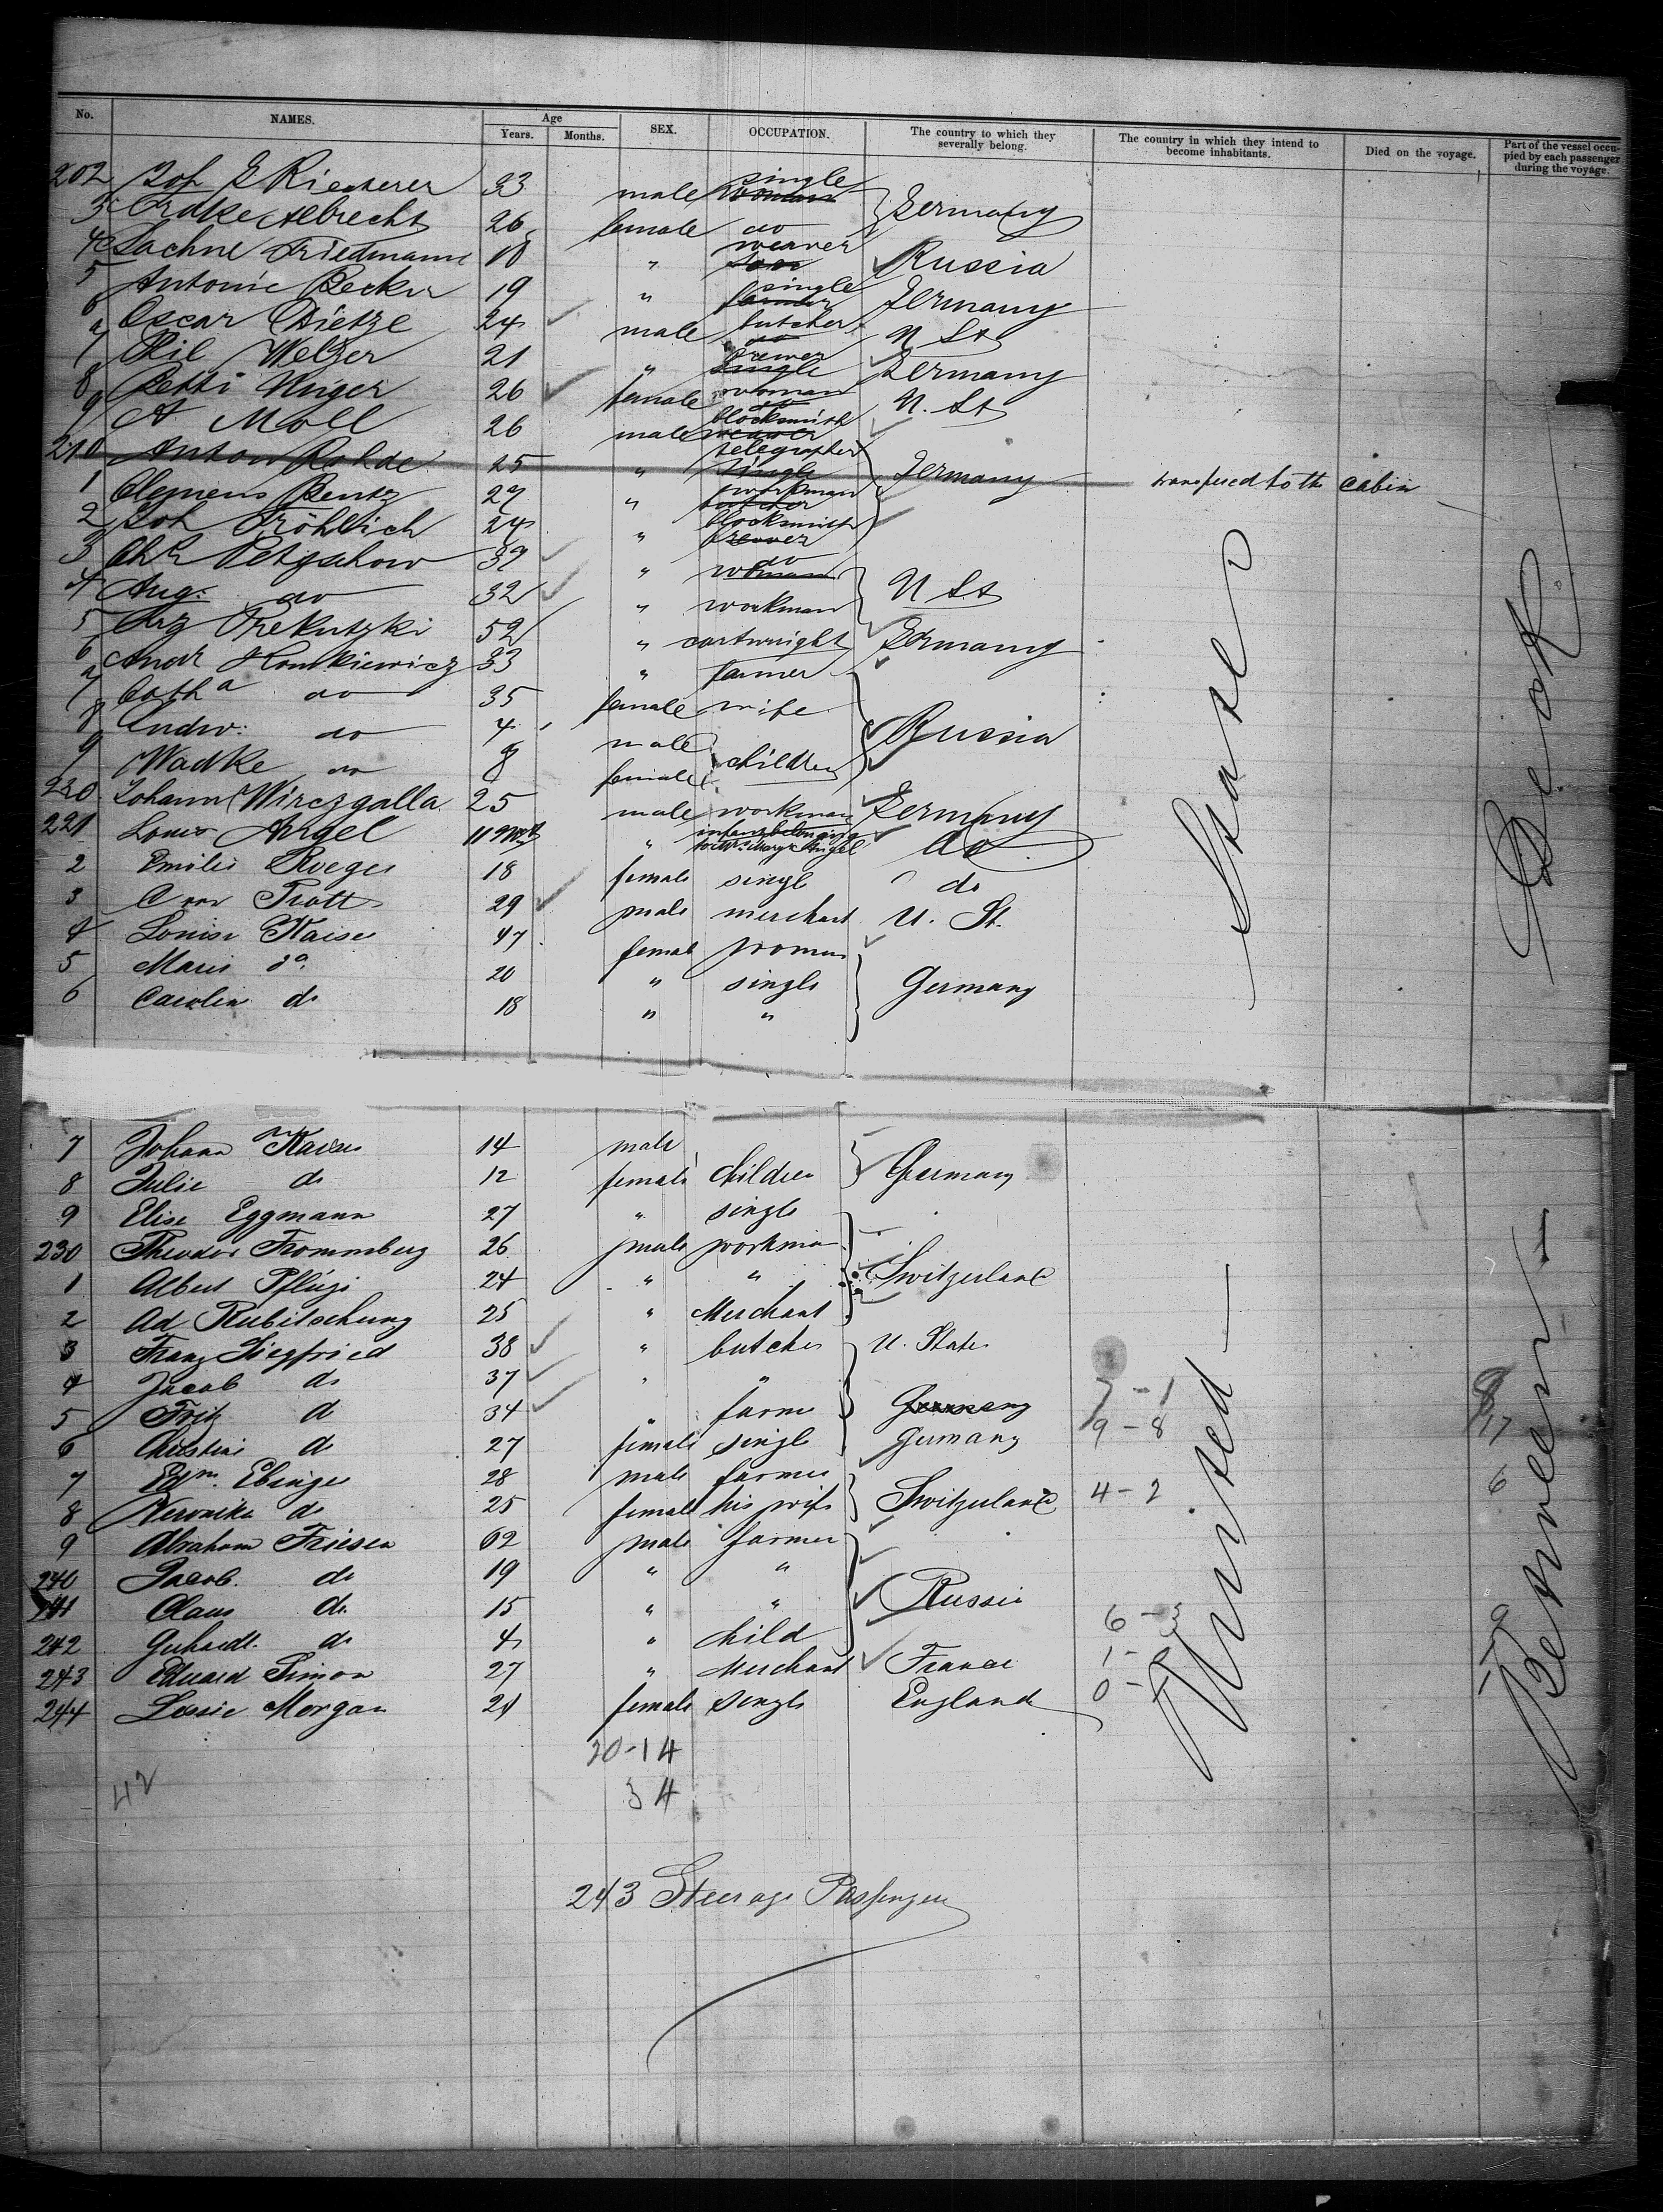 No. NAMES. Age Years. Months. SEX. OCCUPATION. The country to which they severally belong. The country in which they intend to become inhabitants. Died on the voyage. Part of the vessel occupied by each passenger during the voyage.
202 Joh 33 male single woman Germany
3 Albrecht 26 female do
4 Friedmann 18 " weaver Russia
5 Antonie Becker 19 " single farmer Germany
6 Oscar Dietze 24 male butcher do U St
7 Welzer 21 " brewer single Germany
8 Betti Unger 26 female woman U. St
9 A Moll 26 male blocksmith weaver
210 Anton Rohde 25 " telegrapher single Germany transfered to the cabin
1 Clemens Bentz 27 " workman butcher
2 Joh Fröhlich 24 " blocksmith brewer
3 Petzschow 32 " do woman U St
4 Aug: do 32 " workman
5 52 " cartwright Germany
6 Andr 33 " farmer
7 Catha do 35 female wife Russia
8 Andw: do 4 male children
9 Wadke do 8 female
220 Johann Wirczgalla 25 male workman Germany
221 Louis Angel 11 " infant belonging Angel do
2 Emilie 18 female single do
3 Trott 29 male merchant U. St.
4 Louise Kaiser 47 female woman
5 Marie do. 20 " single Germany
6 Carolin do 18 " "
7 Johann Kaiser 14 male
8 Julie do 12 female children Germany
9 Elise Eggmann 27 " single
230 Theodor Frommberg 26 male workman
1 Albert Pflügi 24 " " Switzerland
2 Ad Rubitschung 25 " Merchant
3 Franz Siegfried 38 " butcher U. States
4 Jacob do 37 " "
5 Fritz do 34 " farmer Germany 7 - 1
6 Christine do 27 female single Germany 9 - 8 17
7 Edm. Ebinger 28 male farmer
8 Veronika do 25 female his wife Switzerland 4 - 2 6
9 Abraham Friesen 62 male farmer
240 Jacob do 19 " "
241 Claus do. 15 " " Russia
242 Gerhardt do 4 " child 6 - 3 9
243 Eduard Simon 27 " Merchant France 1 -
244 Morgan 24 female single England 0 -
20-14
34
42
243 Steerage Passengers
United States
Between Deck